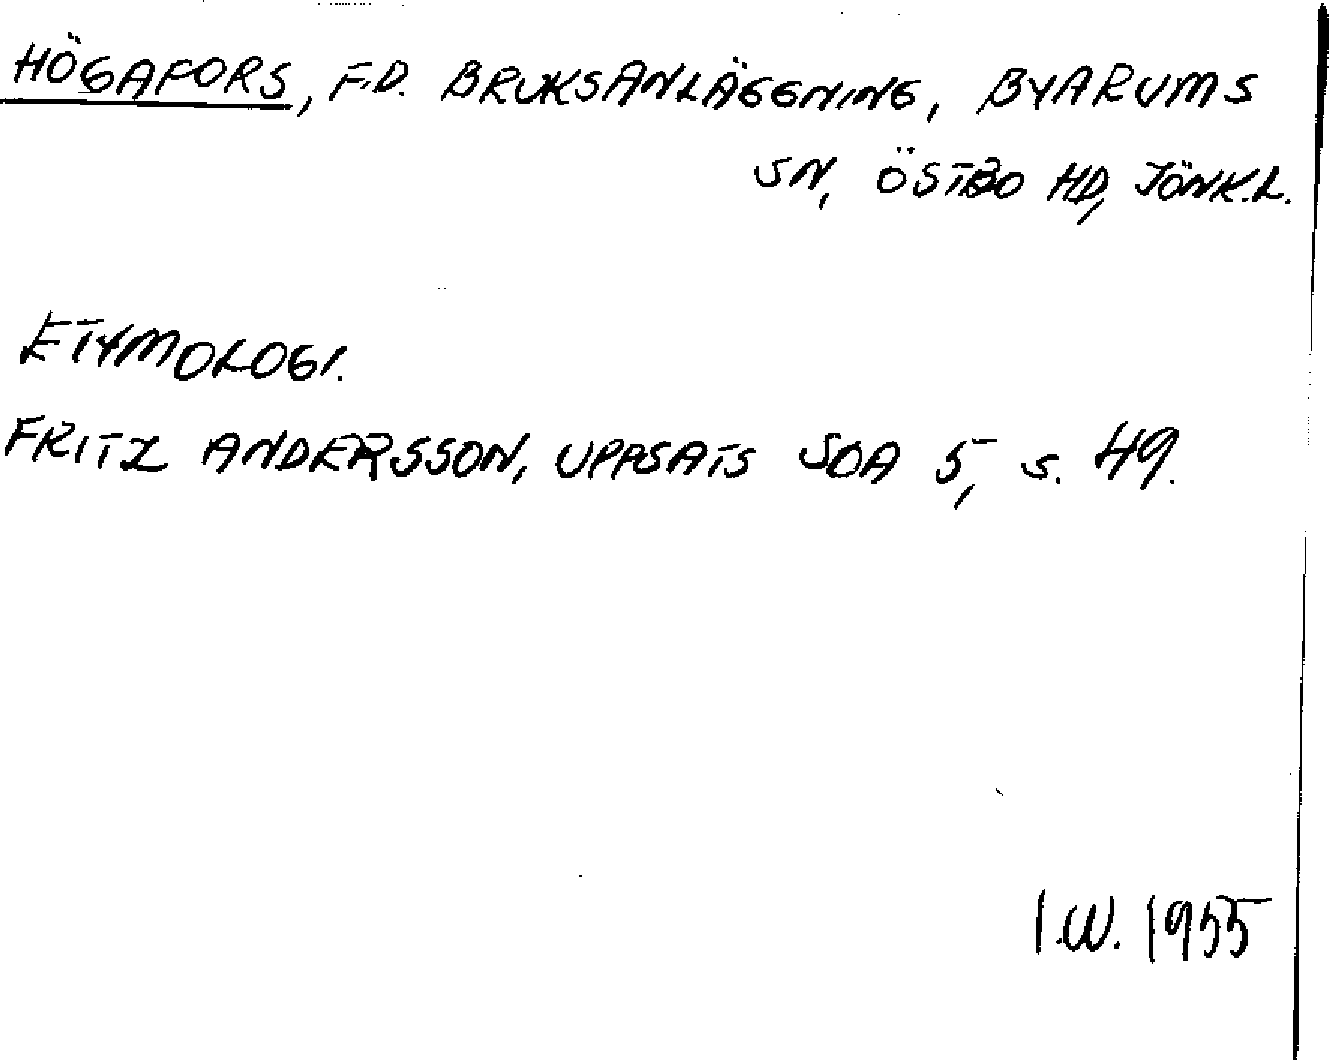 HÖGAFORS, F.D. BRUKSANLÄGGNING, BYARUMS
SN, ÖSTBO HD, JÖNK.L.
ETYMOLOGI.
FRITZ ANDERSSON, UPPSATS SOA 5, S. 49.
I.W. 1955